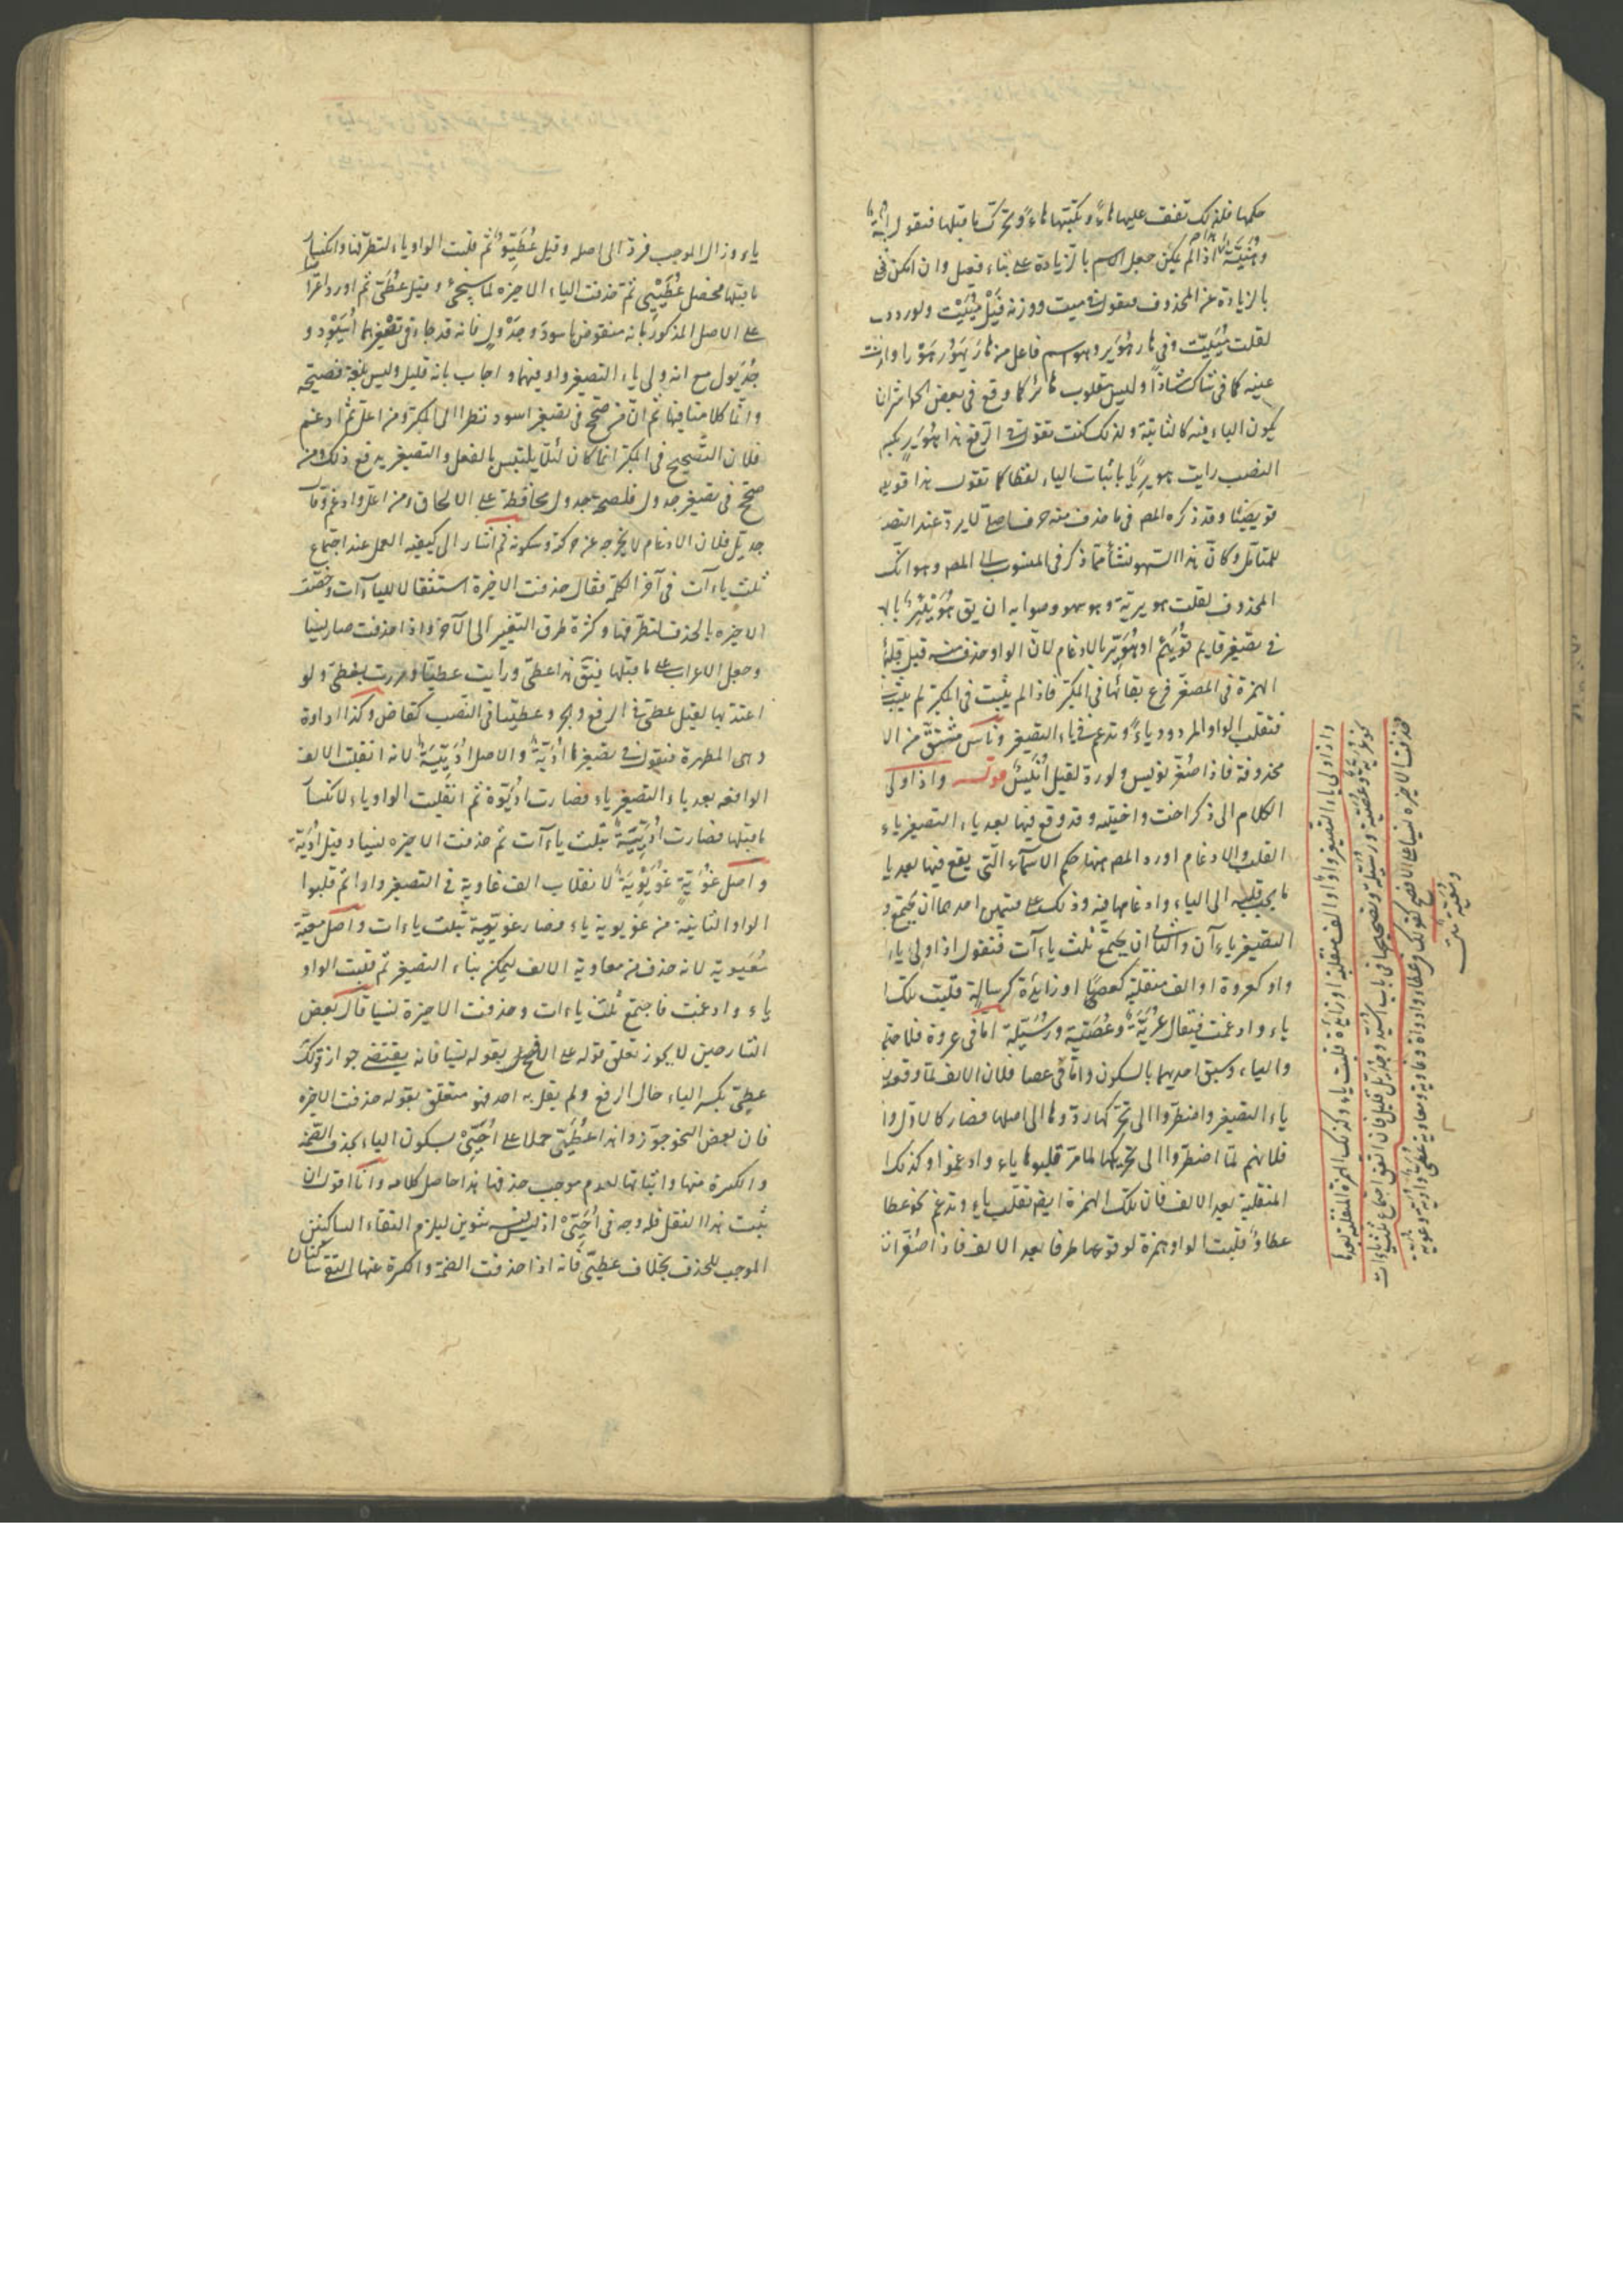 حكمها فلذلك تقف عليها هاءً وتكتبها هاءً وتحرك ما قبلها فتقول
اذا لم يمكن جعل الاسم بالزيادة على بناء فعيل وان امكن فى
بالزيادة عن المحذوف فتقول فى ميت ووزنه فَيْل مُيَيْت ولو رددت
لقلت مُيَيِّت وفى هار هُوَير وهو اسم فاعل من هَارَ يَهَوُر هَوْرا
عينه كما فى شاك شاذًّا وليس بمقلوب هائر كما وقع فى بعض الحواشى ان
يكون الياء فيه كالثانية ولذلك كنت تقول فى الرفع هذا هُوَيرٍ
النصب رايت هويرِيًا باثبات الياء لفظا كما تقول هذا
وقد ذكره المص فى ما حذف منه حرف اصلى لا يرد عند
للمتامل وكان هذا السهو نشأ مما ذكر فى المنسوب الى المص وهو انك
المحذوف لقلت هويرية وهو سهو وصوابه ان يق هُوَيْئِرٌ
فى تصغير قايم قُوَيئم او هُوَيِّر بالادغام لان الواو حذف منه قبل قلبها
الهمزة فى المصغر فرع بقائها فى المكبر فاذا لم يثبت فى المكبر لم يثبت
فتقلب الواو المردود ياءً وتدغم فى ياء التصغير وناس مشتق من
محذوفة فاذا صغر نويس ولو رد لقيل اُنَيِّسٌ قوله واذا ولى
الكلام الى ذكر اخت واختيه وقد وقع فيها بعد ياء التصغير ياء
القلب والادغام اورد المص ههنا حكم الاسماء التى يقع فيها بعد يا
ما يجب قلبه الى الياء وادغامها فيه وذلك على قسمين احدهما ان يجتمع
التصغير ياءآن والثانى ان يجتمع ثلث ياءآت فنقول اذا ولى ياء
واو كعروة او الف منقلبة كعصًا او زائدة كرسالة قلبت تلك
ياء وادغمت فيقال عُرَيَّةٌ وعُصَيَّة ورُسَيِّلة اما فى عروة
والياء وسبق احديهما بالسكون واما فى عصا فلان الالف لما وقعت
ياء التصغير واضطروا الى تحريكها ردوها الى اصلها فصار كالاول
فلانهم لما اضطروا الى تحريكها لما مر قلبوها ياء وادغموا وكذلك
المنقلبة بعد الالف فان تلك الهمزة ايضا تقلب ياء وتدغم نحو عطا
عطاوٌ قلبت الواو همزة لوقوعها طرفا بعد الالف فاذا صغر
واذا ولى ياء التصغير واو او الف منقلبة او زائدة قلبت ياء وكذلك الهمزة المنقلبة بعدها
نحو عُرَيَّة وعُصَيَّة ورُسَيِّلة وتصحيحها فى باب اُسَيِّد وجُدَيِّل قليل فان اتفق اجتماع ثلث ياءات
حذفت الاخيرة نسيا على الافصح كقولك فى عطاء واداوة وغاوية ومعاوية عُطَىّ واُدَيَّة وغُوَيَّة
ومُعَيَّة
ياء وزال الموجب فرد الى اصله وقيل عُطَيِّوٌ ثم قلبت الواو ياء لتطرفها وانكسار
ما قبلها فحصل عُطَيِّىٌ ثم حذفت الياء الاخيرة لما سيجئ وقيل عُطَىّ ثم اورد
على الاصل المذكور بانه منقوض باسود وجَدْول فانه قد جاء فى تصغيرهما اُسَيْوِد و
جُدَيْوِل مع انه ولى ياء التصغير واو فيهما واجاب بانه قليل وليس بلغة فصيحة
وانما كلامنا فيها ثم ان من صحح فى تصغير اسود نظرا الى المكبر ومن اعل ثم ادغم
فلان التصحيح فى المكبر انما كان لئلا يلتبس بالفعل والتصغير يدفع ذلك ومن
صحح فى تصغير جدول فلصحة جدول محافظة على الالحاق ومن اعل وادغم وقال
جديّل فلان الادغام لا يخرجه عن حركة وسكونه ثم اشار الى كيفية العمل عند اجتماع
ثلث ياءآت فى آخر الكلمة فقال حذفت الاخيرة استثقالا للياءآت وخصت
الاخيرة بالحذف لتطرفها وكثرة طرق التغيير الى الآخر واذا حذفت صار نسيا
وجعل الاعراب على ما قبلها فيق هذا عطىّ ورأيت عطيّا ومررت بعطىّ ولو
اعتد بها لقيل عطىّ فى الرفع والجر وعطييا فى النصب كقاض وكذا اداوة
وهى المطهرة فنقول فى تصغيرها اُدَيَّةٌ والاصل اُدَيِّيَةٌ لانه انقلبت الالف
الواقعه بعد ياء التصغير ياء فصارت اُدَيِّوة ثم انقلبت الواو ياء لانكسار
ما قبلها فصارت اُدَيِّيَةٌ بثلث ياءآت ثم حذفت الاخيرة نسيا وقيل اُدَيَّة
واصل غُوَيَّةٍ غُوَيْوِيَةٌ لانقلاب الف غاوية فى التصغير واوا ثم قلبوا
الواو الثانية من غويوية ياء فصار غويّيية بثلث ياءات واصل معيّة
مُعَيوية لانه حذف من معاوية الالف ليمكن بناء التصغير ثم قلبت الواو
ياء وادغمت فاجتمع ثلث ياءات وحذفت الاخيرة نسيا قال بعض
الشارحين لا يجوز تعلق قوله على الافصح بقوله نسيا فانه يقتضى جواز قولك
عطىّ بكسر الياء حال الرفع ولم يقل به احد فهو متعلق بقوله حذفت الاخيرة
فان بعض النحو جوّزوا هذا عُطَيِّى حملا على اُحَيِّىْ بسكون الياء بحذف الضمة
والكسرة منها واثباتها لعدم موجب حذفها هذا حاصل كلامه وانا اقول ان
ثبت هذا النقل فله وجه فى اُحَيِّىْ اذ ليس فيه تنوين ليلزم التقاء الساكنين
الموجب للحذف بخلاف عطيّى فانه اذا حذفت الضمة والكسرة عنها التقى ساكنان